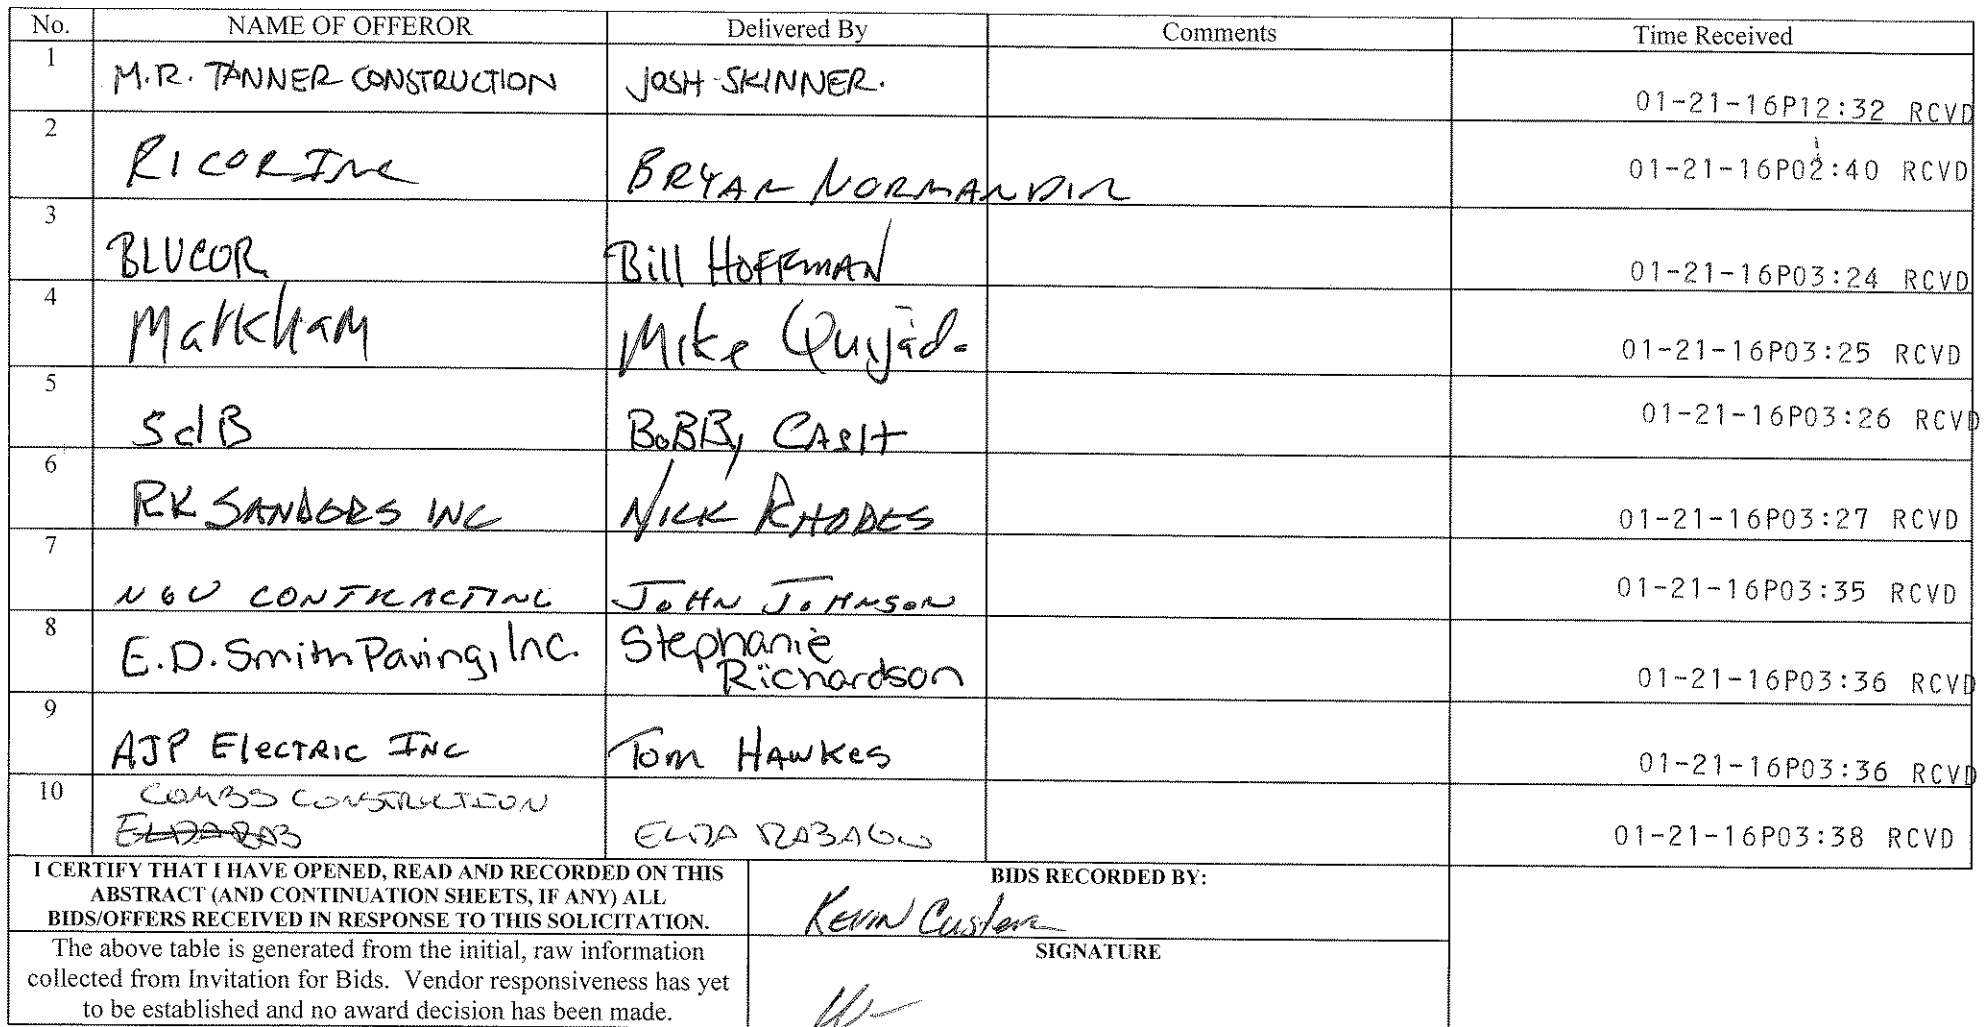 No. NAME OF OFFEROR Delivered By Comments Time Received
1 M.R. TANNER CONSTRUCTION JOSH SKINNER. 01-21-16P12:32 RCVD
2 RICOR Inc BRYAN NORMANDIN 01-21-16P02:40 RCVD
3 BLUCOR Bill HOFFMAN 01-21-16P03:24 RCVD
4 Markham Mike Quijada 01-21-16P03:25 RCVD
5 SdB BOBBY CASH 01-21-16P03:26 RCVD
6 RK SANDERS INC NICK RHODES 01-21-16P03:27 RCVD
7 NGU CONTRACTING JOHN JOHNSON 01-21-16P03:35 RCVD
8 E.D. Smith Paving, Inc. Stephanie
Richardson 01-21-16P03:36 RCVD
9 AJP Electric Inc Tom HAWKES 01-21-16P03:36 RCVD
10 COMBS CONSTRUCTION
ELIDA RABAGO 01-21-16P03:38 RCVD
I CERTIFY THAT I HAVE OPENED, READ AND RECORDED ON THIS
ABSTRACT (AND CONTINUATION SHEETS, IF ANY) ALL
BIDS/OFFERS RECEIVED IN RESPONSE TO THIS SOLICITATION.
BIDS RECORDED BY:
Kevin Custer
The above table is generated from the initial, raw information
collected from Invitation for Bids. Vendor responsiveness has yet
to be established and no award decision has been made.
SIGNATURE